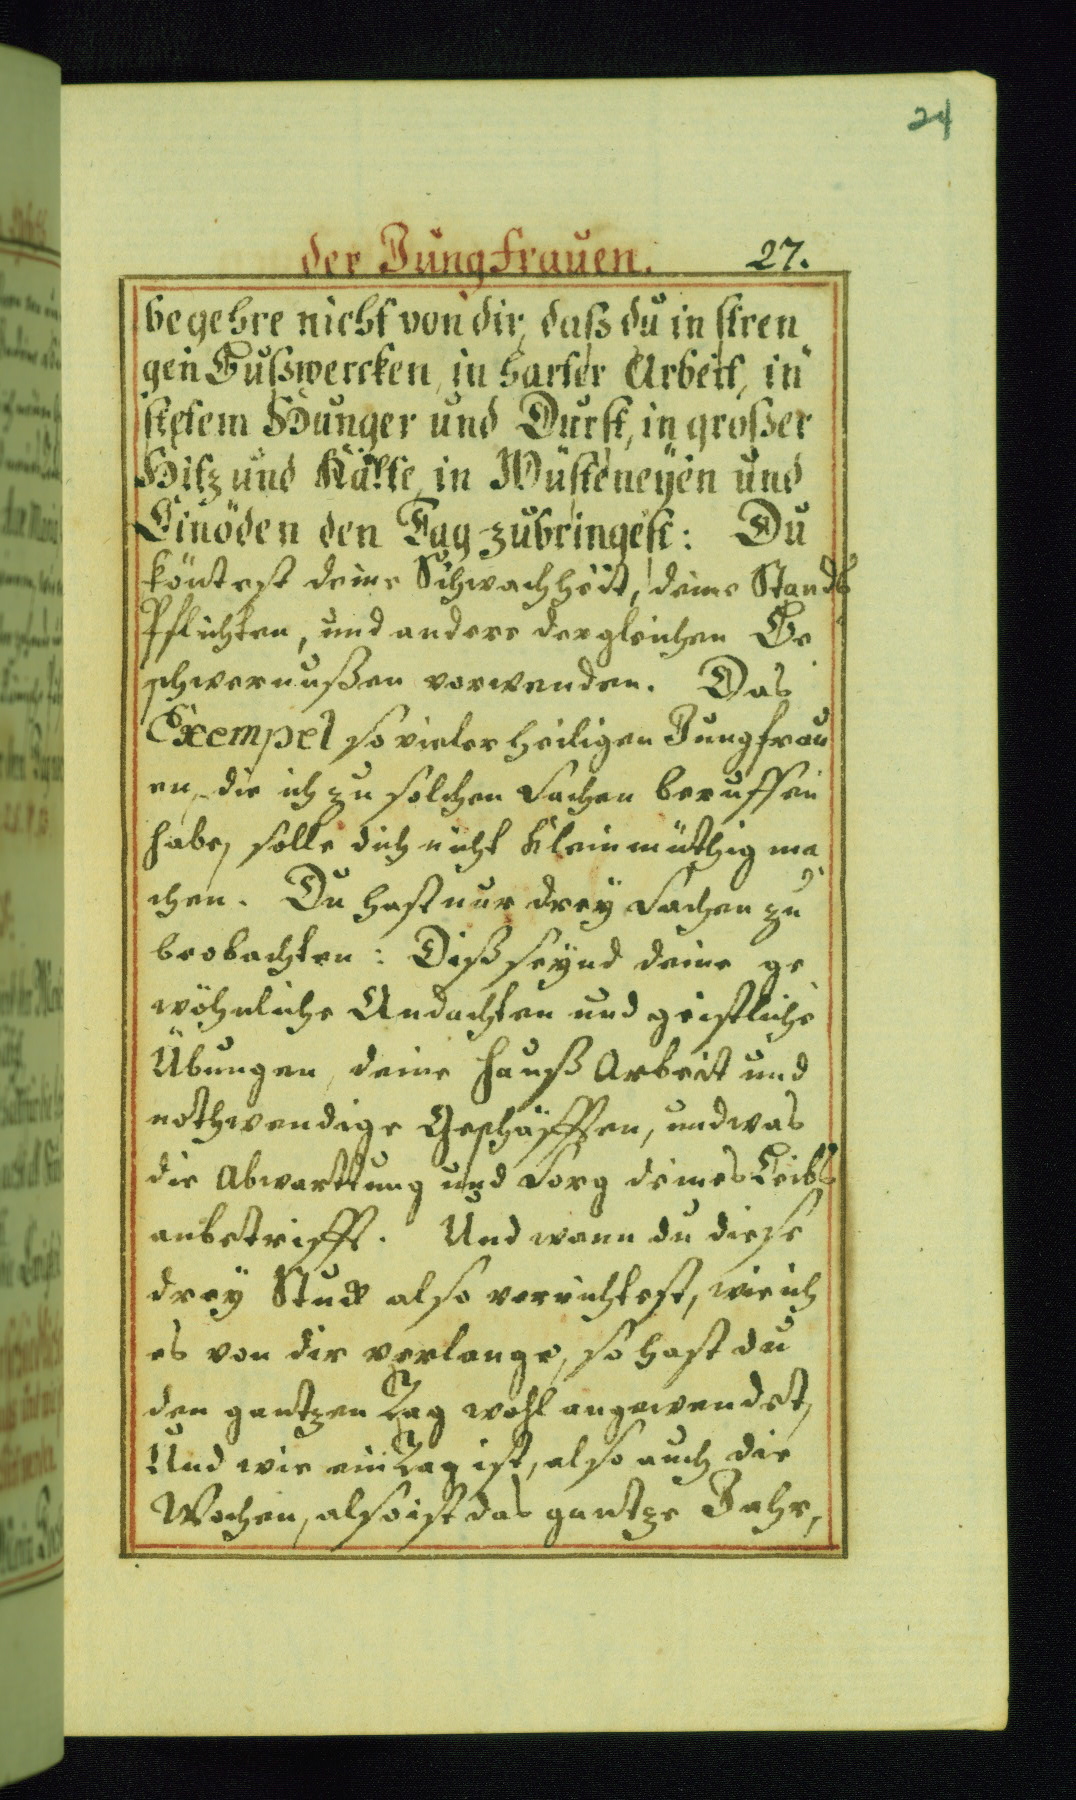 24
der Jungfrauen. 27.
begehre nicht von dir, daß du in stren
gen Bußwercken, in harter Arbeit, in
stetem Hunger und Durst, in großer
Hitz und Kälte, in Wüsteneÿen und
Einöden den Tag zubringest: Du
köntest deine Schwachheit, deine Stands
Pflichten, und andere dergleichen Be
schwernußen vorwenden. Das
Exempel so vieler heiligen Jungfrau
en, die ich zu solchen Sachen beruffen
habe, solle dich nicht kleinmüthig ma
chen. Du hast nur dreÿ Sachen zu
beobachten: Diß seÿnd deine ge
wöhnliche Andachten und geistliche
Übungen, deine Hauß Arbeit und
nothwendige Geschäfften, und was
die Abwarttung und Sorg deines Leibs
anbetrifft. Und wann du diese
dreÿ Stuck also verrichtest, wie ich
es von dir verlange, so hast du
den gantzen Tag wohl angewendet,
Und wie ein Tag ist, also auch die
Wochen, also ist das gantze Jahr,